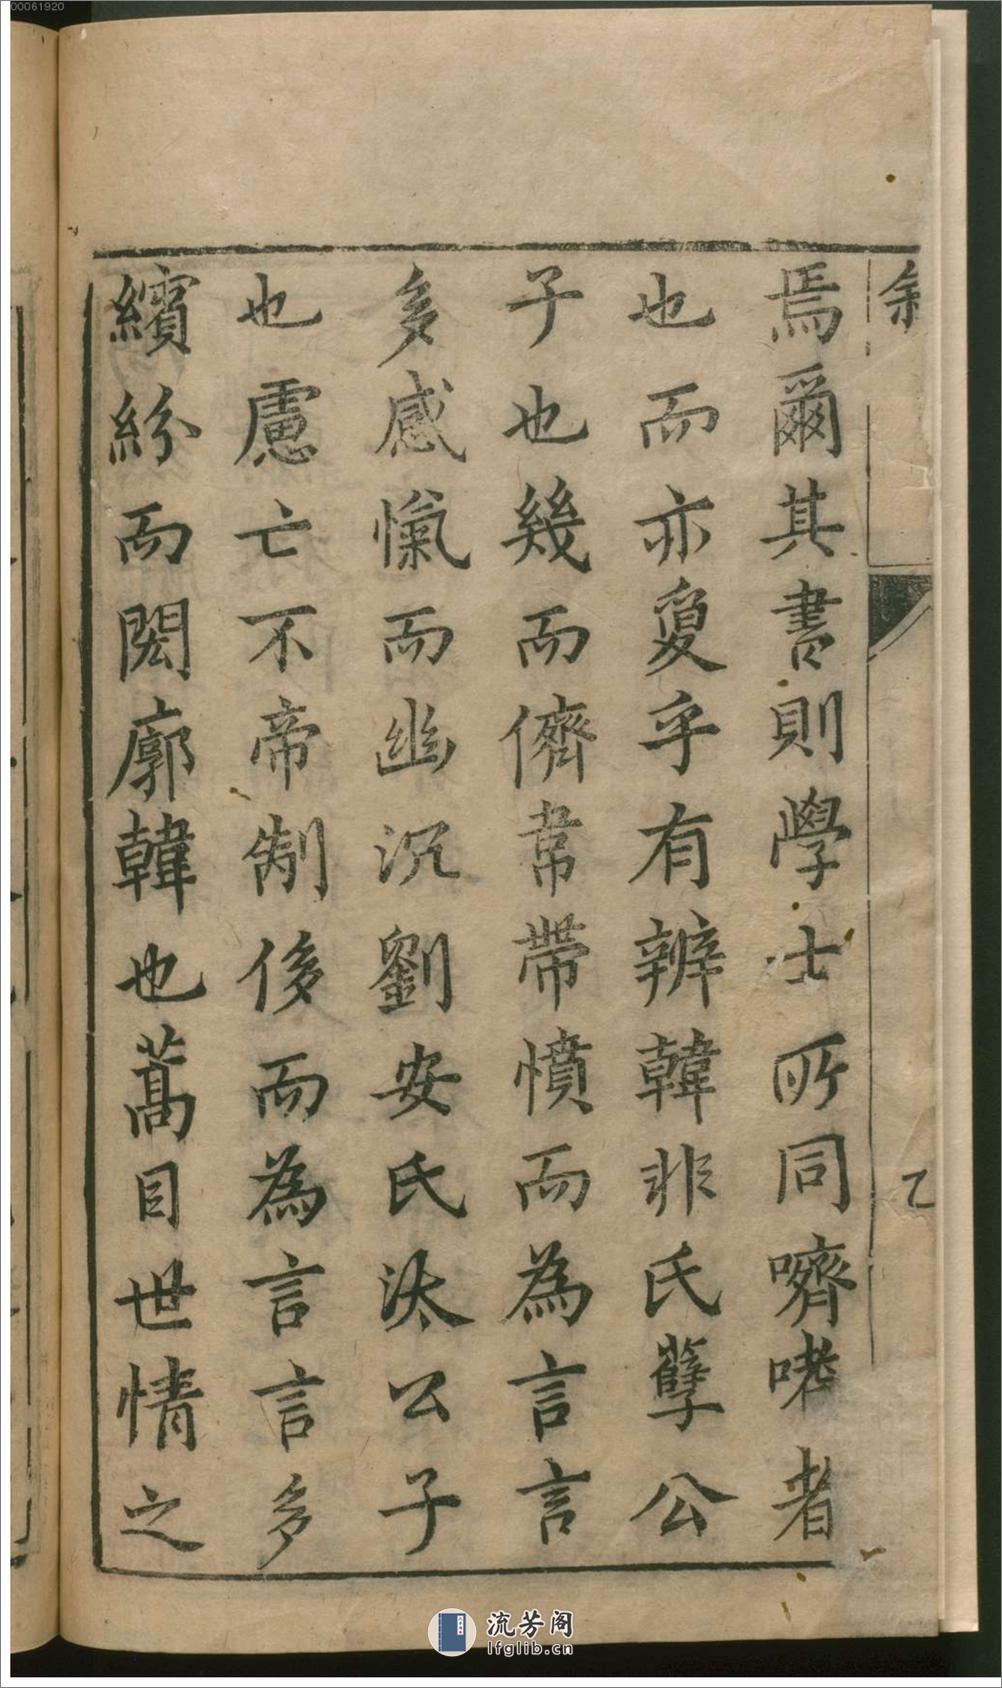 00061920
叙
乙
焉爾其書則學士所同嚌嗜者
也而亦夐乎有辨韓非氏孽公
子也幾而儕韋帶憤而為言言
多感愾而幽沉劉安氏汰公子
也慮亡不帝制侈而為言言多
繽紛而閎廓韓也蒿目世情之
流芳阁
lfglib.cn